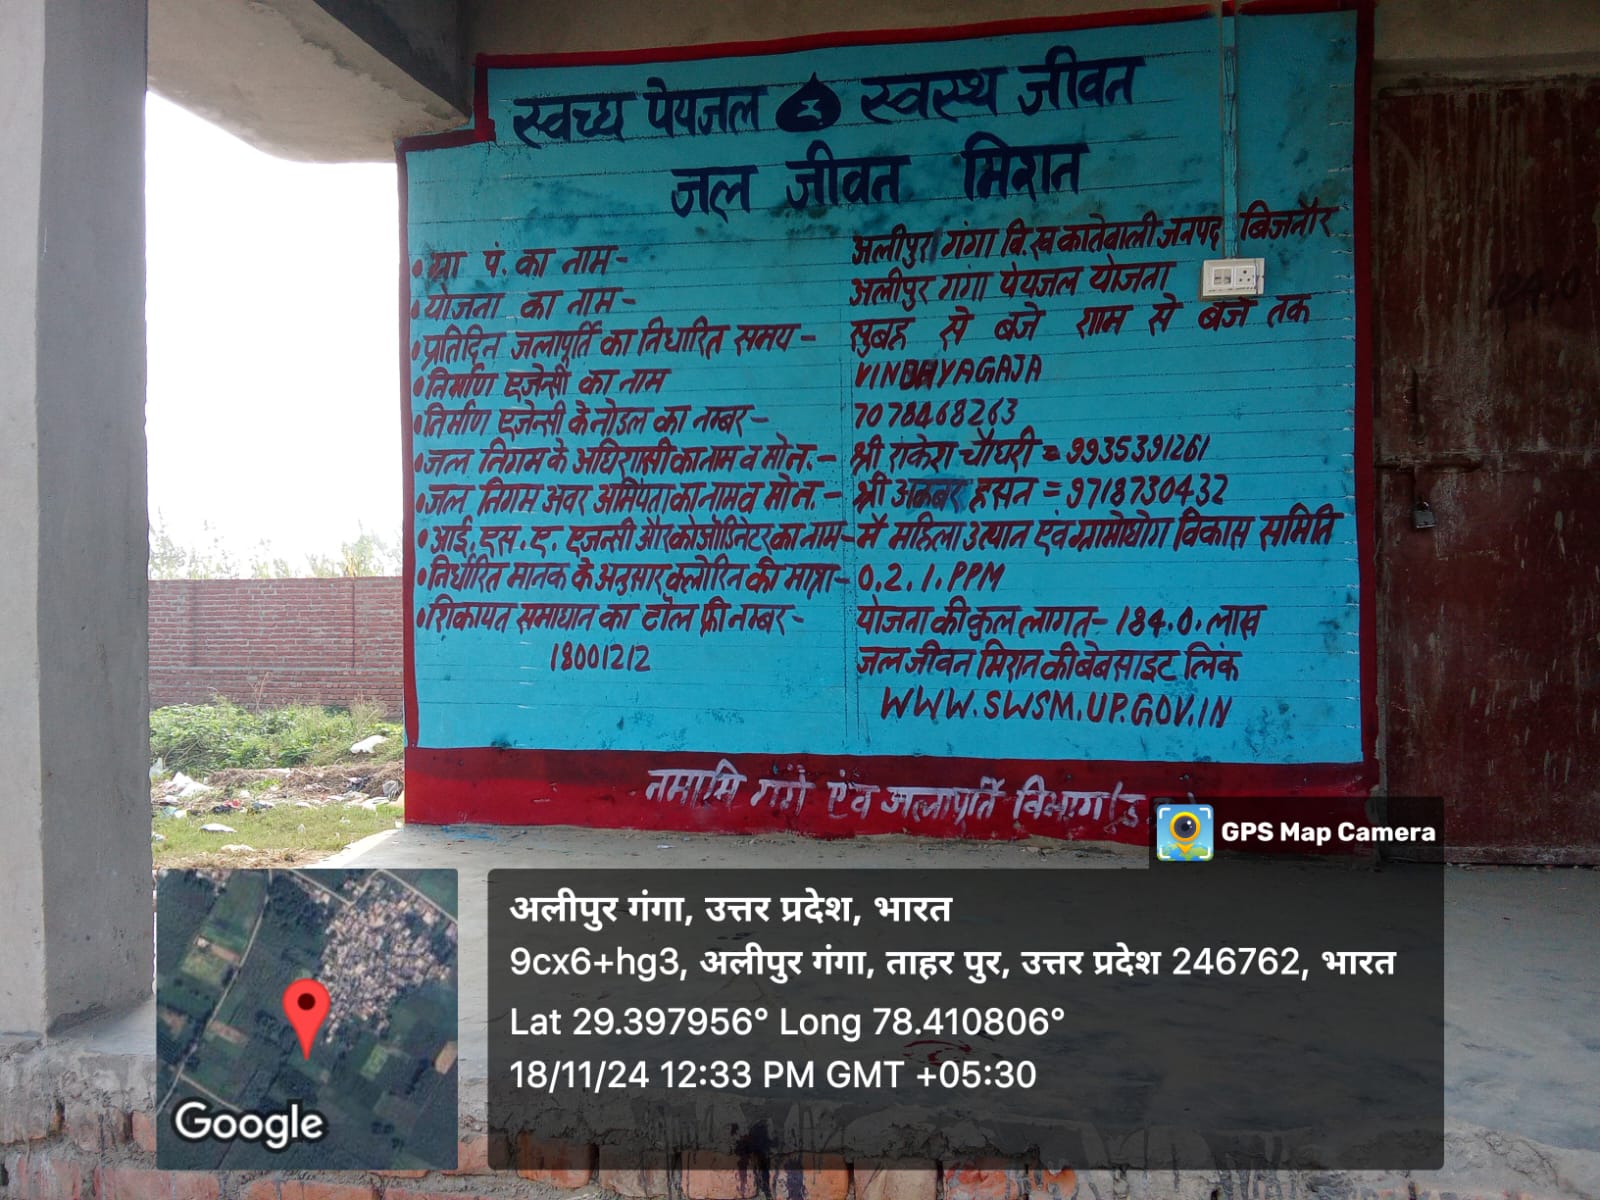 स्वच्छ पेयजल स्वस्थ जीवन
जल जीवन मिशन
ग्रा पं. का नाम- अलीपुर गंगा वि.ख कोतवाली जनपद बिजनौर
योजना का नाम- अलीपुर गंगा पेयजल योजना
प्रतिदिन जलापूर्ति का निर्धारित समय- सुबह से बजे शाम से बजे तक
निर्माण एजेन्सी का नाम VINDHYAGAJA
निर्माण एजेन्सी के नोडल का नम्बर- 7078468263
जल निगम के अधिशासी का नाम व मो.न.- श्री राकेश चौधरी = 9935391261
जल निगम अवर अभियंता का नाम व मो.न.- श्री अकबर हसन = 9718730432
आई.एस.ए. एजेन्सी और कोऑर्डिनेटर का नाम- मै महिला उत्थान एवं ग्रामोद्योग विकास समिति
निर्धारित मानक के अनुसार क्लोरिन की मात्रा- 0.2.1.PPM
शिकायत समाधान का टोल फ्री नम्बर- योजना की कुल लागत- 184.0.लाख
18001212 जल जीवन मिशन की बेबसाइट लिंक
WWW.SWSM.UP.GOV.IN
नमामि गंगे एंव जलापूर्ति विभाग
GPS Map Camera
अलीपुर गंगा, उत्तर प्रदेश, भारत
9cx6+hg3, अलीपुर गंगा, ताहर पुर, उत्तर प्रदेश 246762, भारत
Lat 29.397956° Long 78.410806°
18/11/24 12:33 PM GMT +05:30
Google